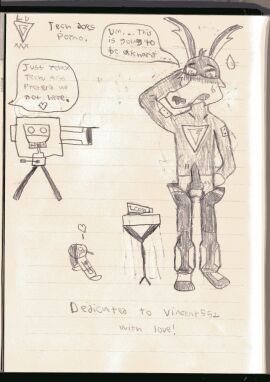 Tech Does
Porno.
Um... This
is going to
be awkward...
Just relax
Tech! And
Pretend we
not here.
Dedicated to Vincent552
with love!